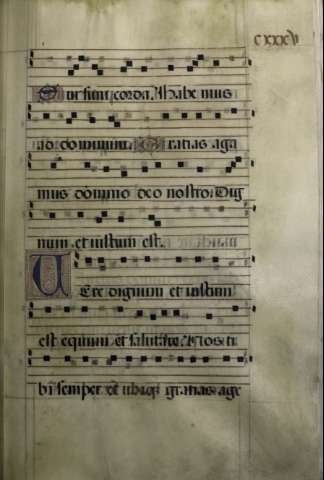 CXXXV
Sursum corda. Habemus
ad dominum. Gratias aga
mus domino deo nostro. Dig
num et iustum est.
Vere dignum et iustum
est equum et salutare. Nos ti
bi semper et ubiq gratias age